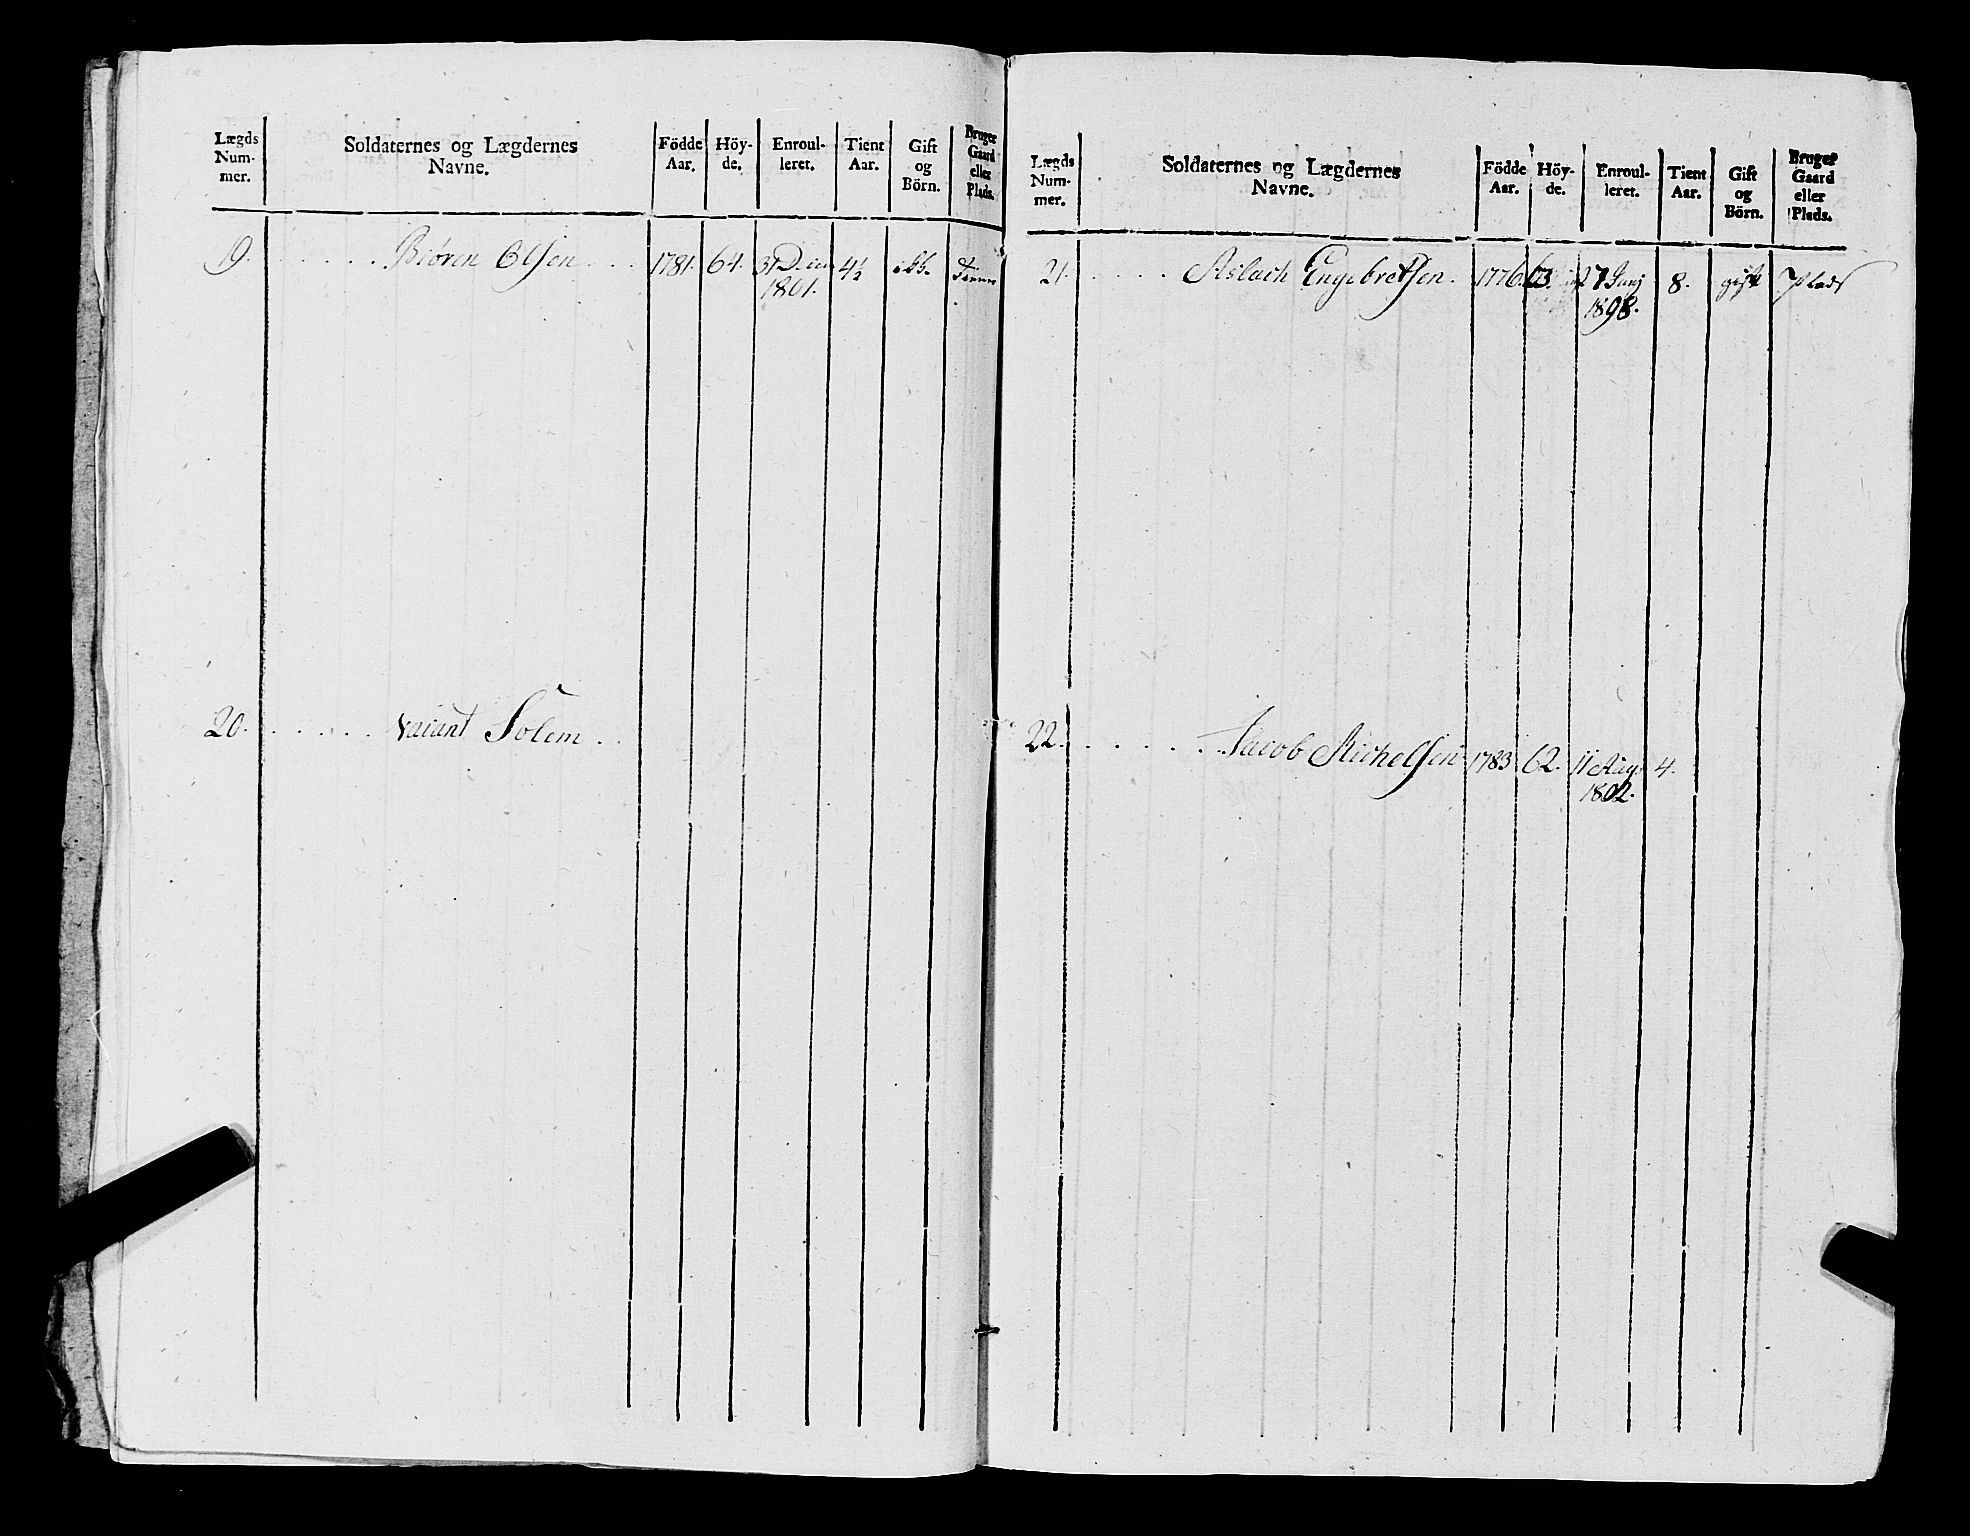 Lægds Num- mer.
Soldaternes og Lægdernes Navne.
Födde Aar.
Höy- de.
Enroul- leret.
Tient Aar.
Gift og Börn.
Bruger Gaard eller Plads.
19. Biören Olsen 1781. 64. 31 4½
1801.
20. vacant Solem
Lægds Num- mer.
Soldaternes og Lægdernes Navne.
Födde Aar.
Höy- de.
Enroul- leret.
Tient Aar.
Gift og Börn.
Bruger Gaard eller Plads.
21. Aslach Engebretsen. 1776. 63. 7 Junj 8. gift Plads
1898.
22. Jacob Michelsen 1783 62. 11 Aug. 4.
1802.